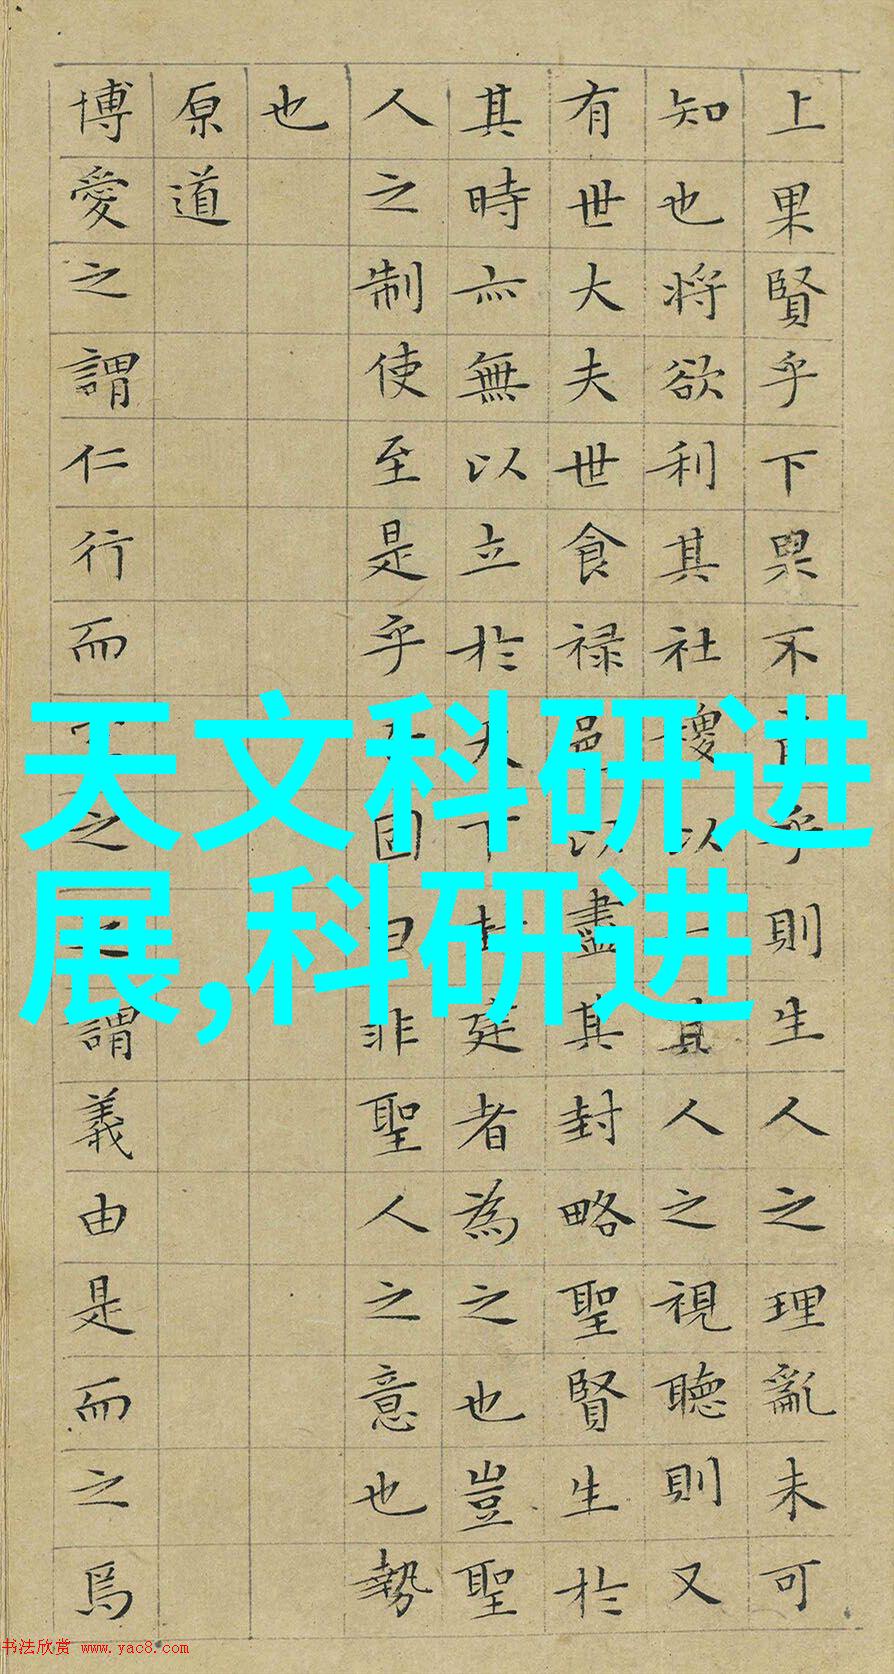 天文科研进
展,科研进
上果賢乎下果不肖乎則生人之理亂未可
知也将欲利其社稷以一其人之視聴則又
有世大夫世食禄邑以盡其封略聖賢生於
其時亦無以立於天下封建者為之也豈聖
人之制使至是乎吾固曰非聖人之意也勢
也
原道
博愛之謂仁行而宜之之謂義由是而之焉
书法欣赏 www.yac8.com